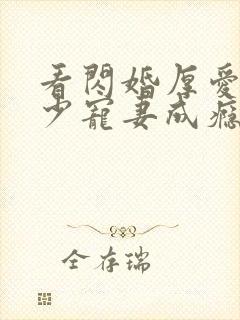 看闪婚厚爱
少宠妻成瘾
全存瑞